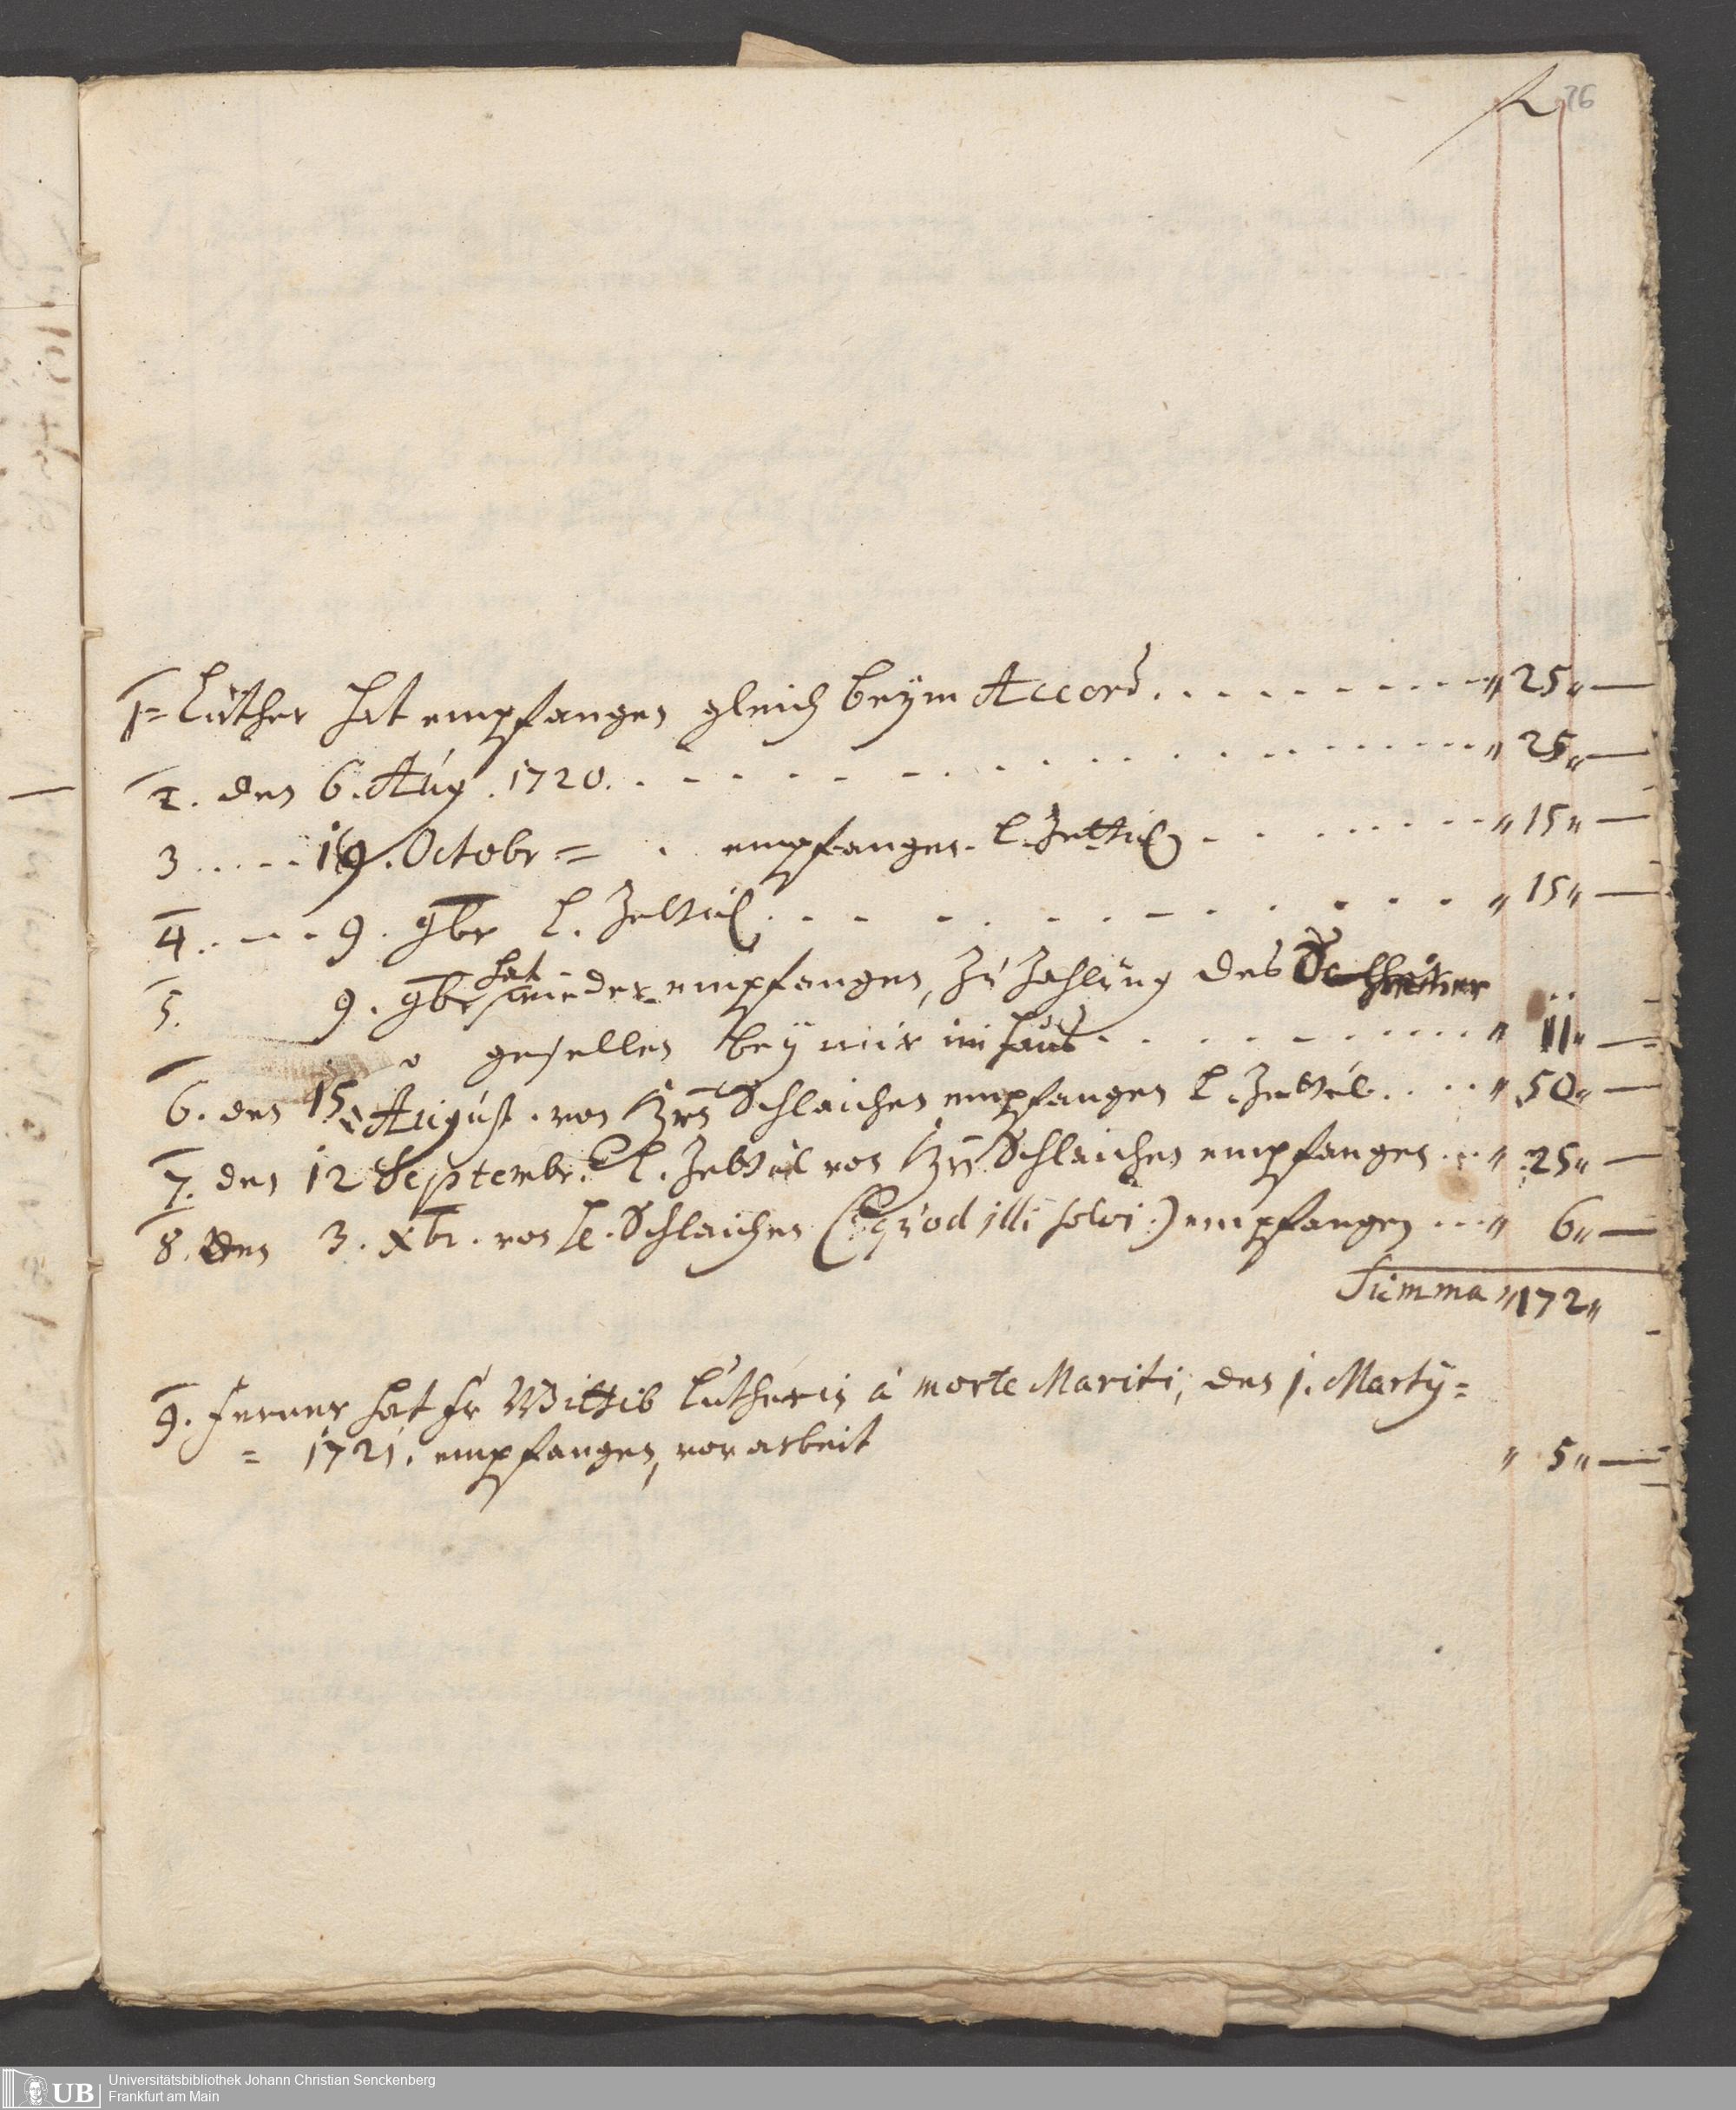 fl 76
1= Luther hat empfangen gleich beym Accord. . . . . . . . . . . „ 25 „ —
2. den 6. Aug. 1720. . . . . . . . . . . . . . . . „ 25 „ —
3 . . . . . 19. Octobr = . empfangen. l. Zettul . . . . . . . . „ 15 „ —
4. . . . . 9. 9br l. Zettul . . . . . . . . . . . . „ 15 „ —
5. 9. 9br hat wieder empfangen, zu Zahlung des
gesellen bey mir im hauß . . . . . . . . . . „ 11 „ —
6. den 15. August. von Hrn Schleichen empfangen l. Zettul. . . . „ 50 „ —
7. den 12 Septembr. l. Zettul von Hrn Schleichen empfangen . . „ 25 „ —
8. den 3. Xbr. von H. Schleichen (: quod illi solvi :) empfangen . . . „ 6 „ —
Summa „ 172 „
9. Ferner hat Fr Wittib Lutherin à morte Mariti, den 1. Marty =
= 1721. empfangen, vor arbeit „ 5 „ —
UB Universitätsbibliothek Johann Christian Senckenberg
Frankfurt am Main